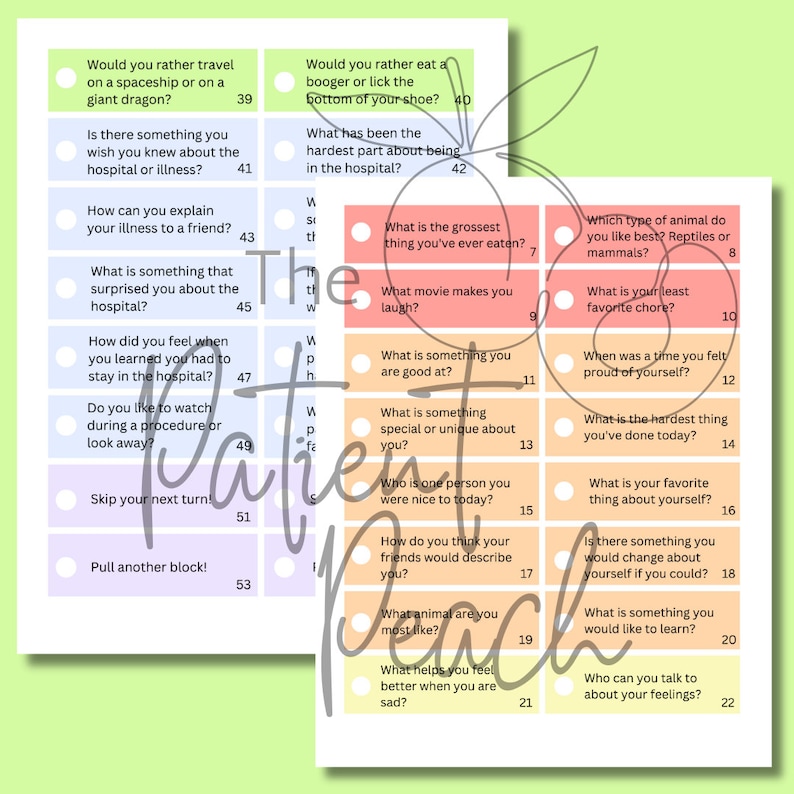 Would you rather travel
on a spaceship or on a
giant dragon?
39
Would you rather eat a
booger or lick the
bottom of your shoe?
40
Is there something you
wish you knew about the
hospital or illness?
41
What has been the
hardest part about being
in the hospital?
42
How can you explain
your illness to a friend?
43
What is something that
surprised you about the
hospital?
45
How did you feel when
you learned you had to
stay in the hospital?
47
Do you like to watch
during a procedure or
look away?
49
Skip your next turn!
51
Pull another block!
53
What is the grossest
thing you've ever eaten?
7
Which type of animal do
you like best? Reptiles or
mammals?
8
What movie makes you
laugh?
9
What is your least
favorite chore?
10
What is something you
are good at?
11
When was a time you felt
proud of yourself?
12
What is something
special or unique about
you?
13
What is the hardest thing
you've done today?
14
Who is one person you
were nice to today?
15
What is your favorite
thing about yourself?
16
How do you think your
friends would describe
you?
17
Is there something you
would change about
yourself if you could?
18
What animal are you
most like?
19
What is something you
would like to learn?
20
What helps you feel
better when you are
sad?
21
Who can you talk to
about your feelings?
22
The
Patient
Peach